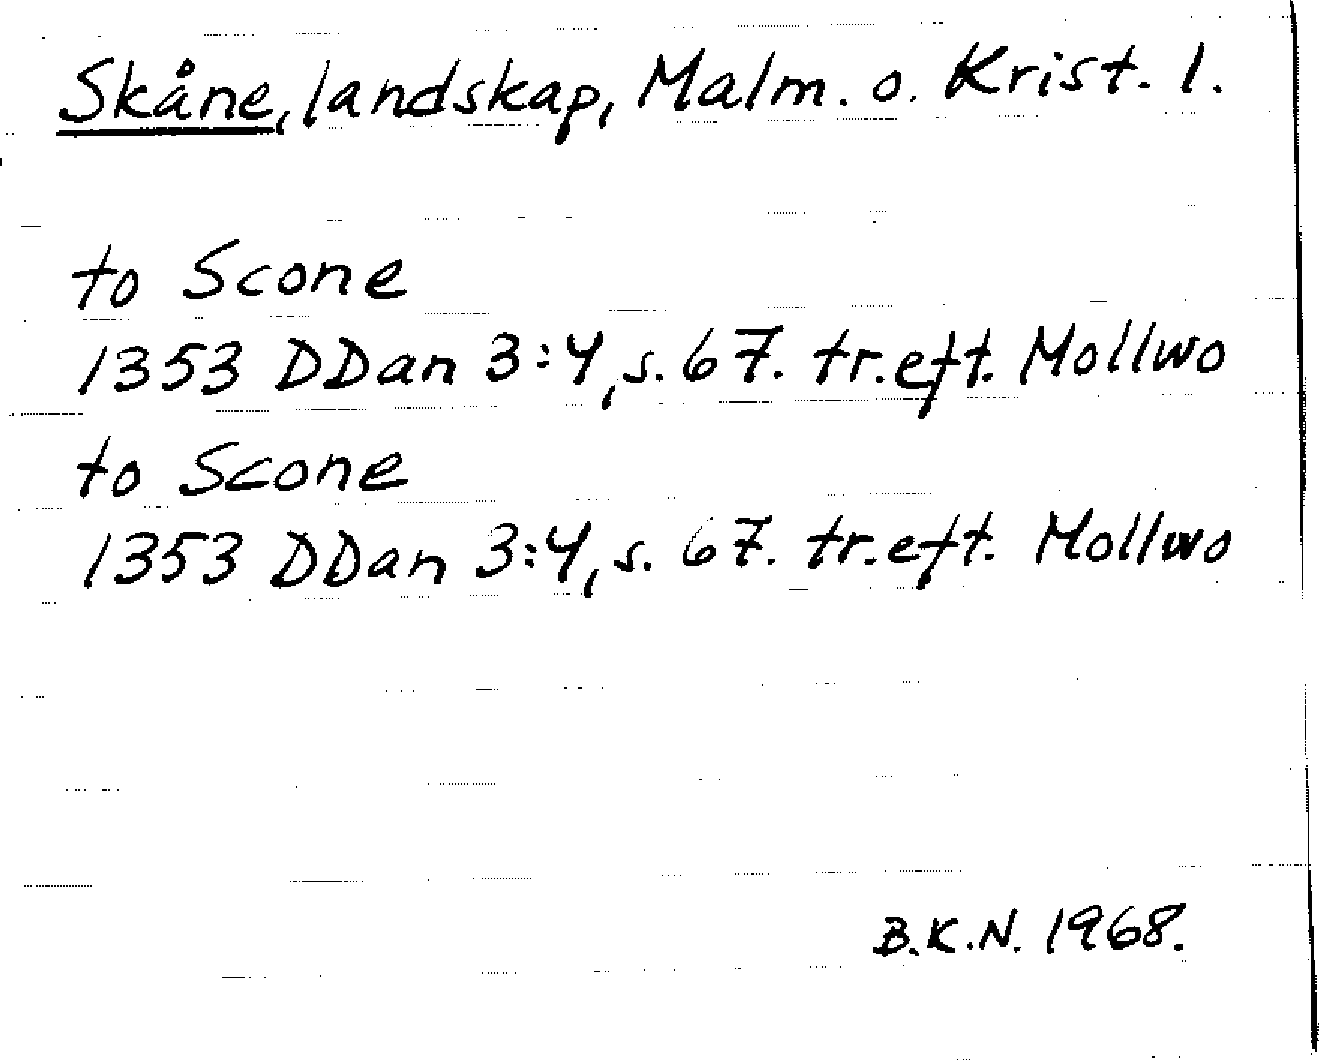 Skåne, landskap, Malm. o. Krist. l.
to Scone
1353 DDan 3:4, s. 67. tr. eft. Mollwo
to Scone
1353 DDan 3:4, s. 67. tr. eft. Mollwo
B.K.N. 1968.